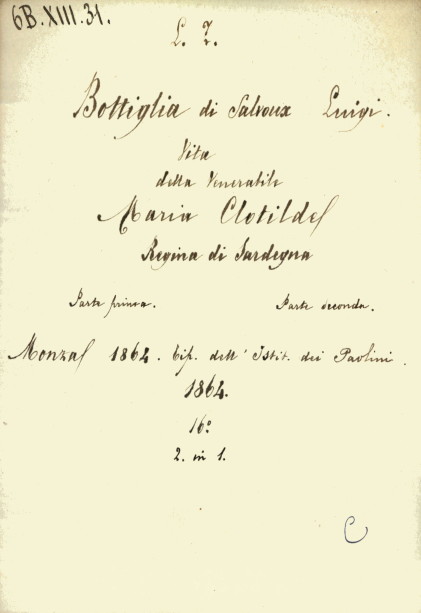 6B.XIII.31.
L. 7.
Bottiglia di Salvoux Luigi.
Vita
della Venerabile
Maria Clotilde
Regina di Sardegna
Parte prima. Parte seconda.
Monza 1864. Tip. dell' Istit. dei Paolini.
1864.
16°
2. in 1.
C